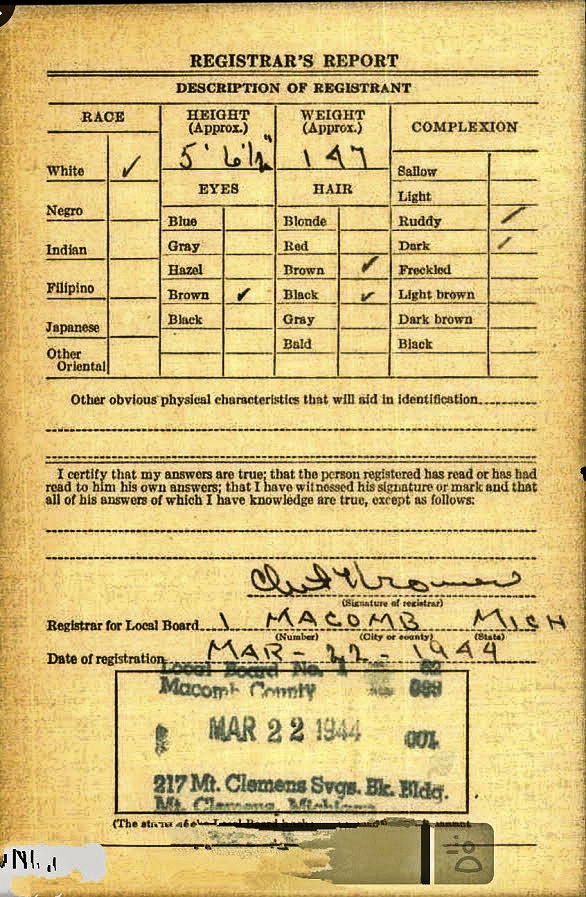 REGISTRAR'S REPORT
DESCRIPTION OF REGISTRANT
RACE
HEIGHT
(Approx.)
WEIGHT
(Approx.)
COMPLEXION
5' 6 1/2"
147
White ✓
Sallow
EYES
HAIR
Light
Negro
Blue
Blonde
Ruddy ✓
Indian
Gray
Red
Dark ✓
Hazel
Brown ✓
Freckled
Filipino
Brown ✓
Black ✓
Light brown
Japanese
Black
Gray
Dark brown
Other
Oriental
Bald
Black
Other obvious physical characteristics that will aid in identification
I certify that my answers are true; that the person registered has read or has had
read to him his own answers; that I have witnessed his signature or mark and that
all of his answers of which I have knowledge are true, except as follows:
(Signature of registrar)
Registrar for Local Board 1 MACOMB MICH
(Number) (City or county) (State)
Date of registration MAR - 22 - 1944
Local Board No. 1 82
Macomb County 099
MAR 22 1944 001
217 Mt. Clemens Svgs. Bk. Bldg.
Mt. Clemens, Michigan